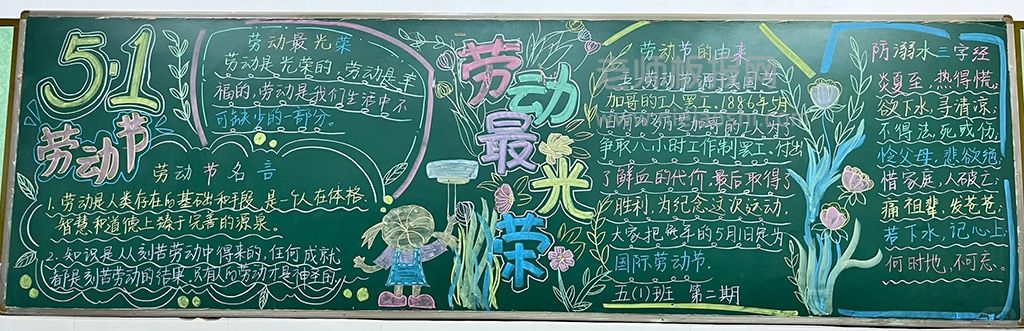 5·1
劳动节
劳动最光荣
劳动是光荣的,劳动是幸
福的,劳动是我们生活中不
可缺少的一部分。
劳动节名言
1.劳动是人类存在的基础和手段,是一个人在体格、
智慧和道德上臻于完善的源泉。
2.知识是从刻苦劳动中得来的,任何成就
都是刻苦劳动的结果。只有人的劳动才是神圣的。
劳动最光荣
劳动节的由来
五一劳动节源于美国芝
加哥的工人罢工。1886年5月
1日有 芝加哥的工人为了
争取八小时工作制罢工,付出
了鲜血的代价,最后取得了
胜利,为纪念这次运动,
大家把每年的5月1日定为
国际劳动节.
五(1)班 第二期
防溺水三字经
炎夏至,热得慌。
欲下水,寻清凉。
不得法,死或伤。
怜父母,悲欲绝。
惜家庭,人破亡。
痛祖辈,发苍苍。
若下水,记心上
何时地,不可忘。